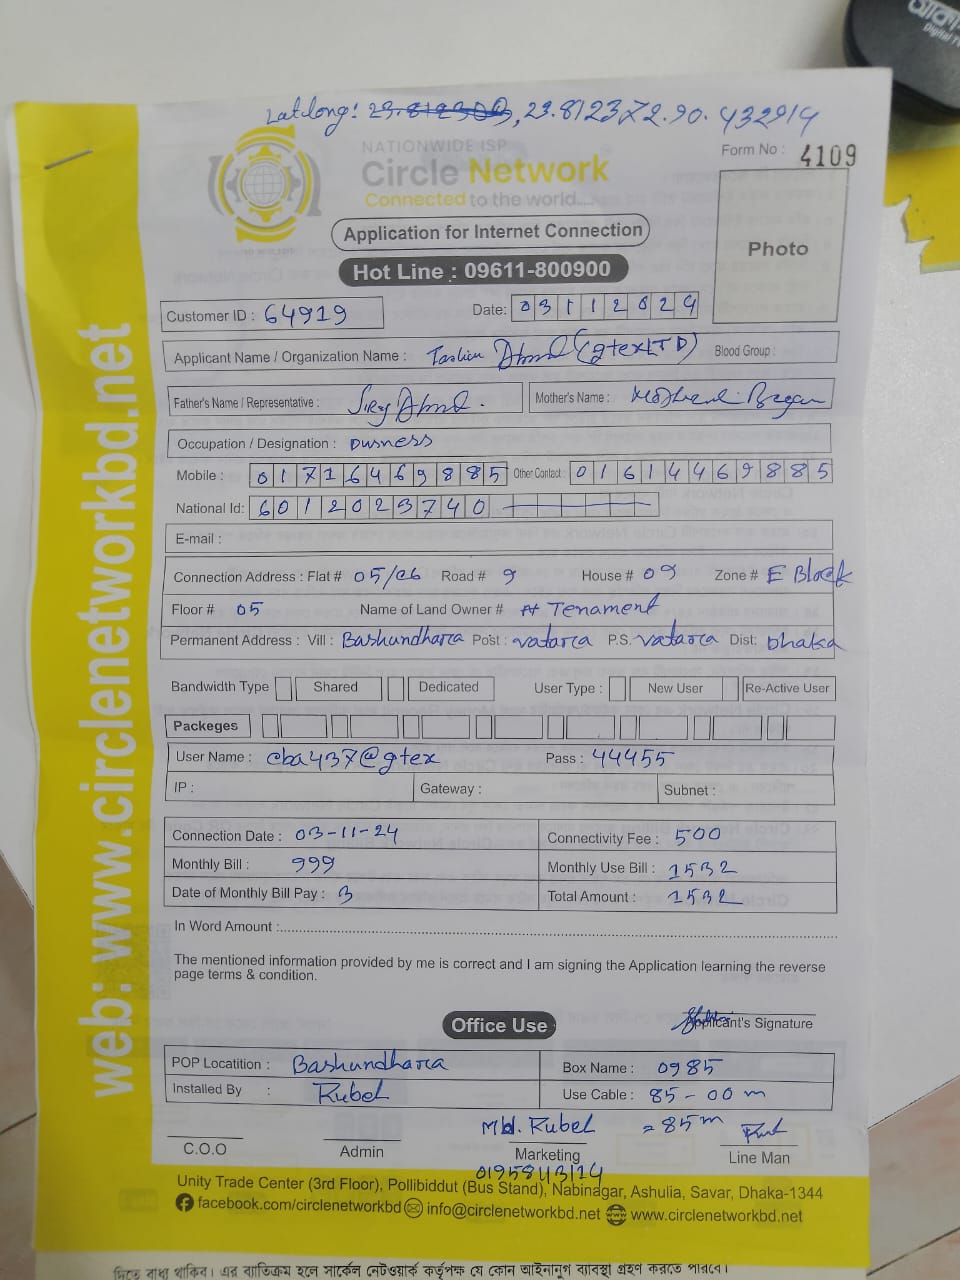 Lat long: 23.812300, 23.812372.90.432914
NATIONWIDE ISP
Circle Network
Connected to the world....
Form No : 4109
Photo
Application for Internet Connection
Hot Line : 09611-800900
Customer ID : 64919
Date: 03112024
Applicant Name / Organization Name : (gtex LTD) Blood Group :
Father's Name / Representative :
Mother's Name : Begam
Occupation / Designation : Dusness
Mobile : 01716469885 Other Contact : 01614469885
National Id: 6012023740
E-mail :
Connection Address : Flat # 05/C6 Road # 9 House # 09 Zone # E Block
Floor # 05 Name of Land Owner # A Tenament
Permanent Address : Vill : Bashundhara Post : vatara P.S. vatara Dist: Dhaka
Bandwidth Type Shared Dedicated User Type : New User Re-Active User
Packeges
User Name : cba437@gtex Pass : 44455
IP : Gateway : Subnet :
Connection Date : 03-11-24 Connectivity Fee : 500
Monthly Bill : 999 Monthly Use Bill : 1532
Date of Monthly Bill Pay : 3 Total Amount : 1532
In Word Amount :
The mentioned information provided by me is correct and I am signing the Application learning the reverse
page terms & condition.
Applicant's Signature
Office Use
POP Locatition : Bashundhara Box Name : 0985
Installed By : Rubel Use Cable : 85-00 m
= 85m
Md. Rubel
C.O.O Admin Marketing Line Man
Unity Trade Center (3rd Floor), Pollibiddut (Bus Stand), Nabinagar, Ashulia, Savar, Dhaka-1344
facebook.com/circlenetworkbd info@circlenetworkbd.net www.circlenetworkbd.net
web: www.circlenetworkbd.net
দিতে বাধ্য থাকিব। এর ব্যতিক্রম হলে সার্কেল নেটওয়ার্ক কর্তৃপক্ষ যে কোন আইনানুগ ব্যবস্থা গ্রহণ করতে পারবে।